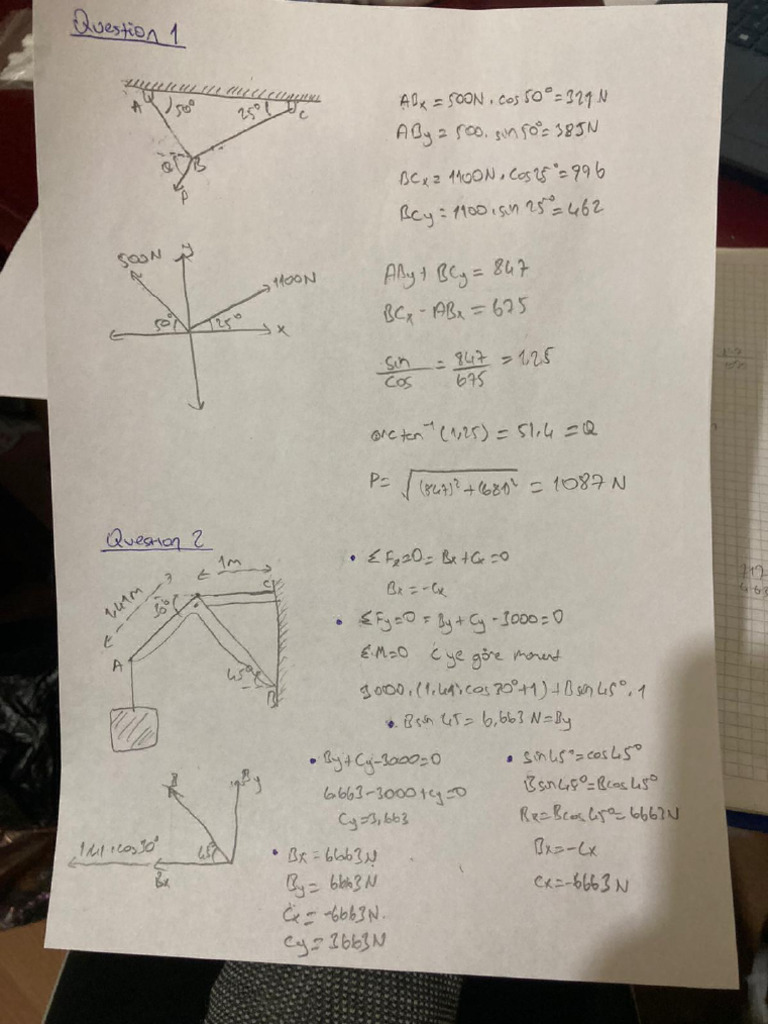 Question 1
A
50°
25°
C
Q
B
P
ABx = 500N . cos50° = 321 N
ABy = 500 . sin50° = 385N
BCx = 1100N . cos25° = 996
BCy = 1100 . sin 25° = 462
500N
y
1100N
50°
25°
x
ABy + BCy = 847
BCx - ABx = 675
sin/cos = 847/675 = 1,25
arctan⁻¹ (1,25) = 51,4 = Q
P = √(847)² + (681)² = 1087 N
Question 2
1m
C
1,41m
30°
A
45°
B
• ΣFx=0 = Bx + Cx = 0
Bx = -Cx
• ΣFy=0 = By + Cy - 3000 = 0
ΣM=0 C ye göre moment
3000.(1,41.cos30°+1) + Bsin45°.1
• Bsin 45 = 6,663 N = By
• By + Cy - 3000 = 0
6663 - 3000 + Cy = 0
Cy = 3,663
• sin45° = cos45°
Bsin45° = Bcos45°
Bx = Bcos45° = 6663N
Bx = -Cx
Cx = -6663 N
B
By
1,41.cos30°
45°
Bx
• Bx = 6663N
By = 6663N
Cx = -6663 N.
Cy = 3663N